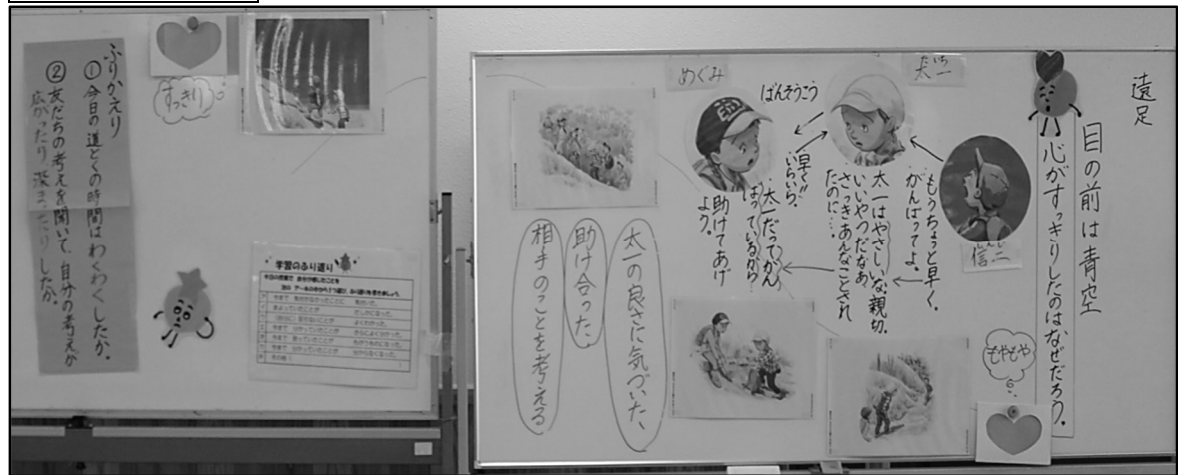 遠足
目の前は青空
心がすっきりしたのはなぜだろう。
もやもや
信二
しんじ
もうちょっと早く、
がんばってよ。
太一
たいち
太一はやさしいな、親切。
いいやつだなあ
さっきあんなことされ
たのに…。
ばんそうこう
めぐみ
早く!!
いらいら。
太一だってがん
ばっているから
助けてあげ
よう。
太一の良さに気づいた、
助け合った、
相手のことを考える
すっきり
ふりかえり
①今日の道とくの時間はわくわくしたか。
②友だちの考えを聞いて、自分の考えが
広がったり深まったりしたか。
学習のふり返り